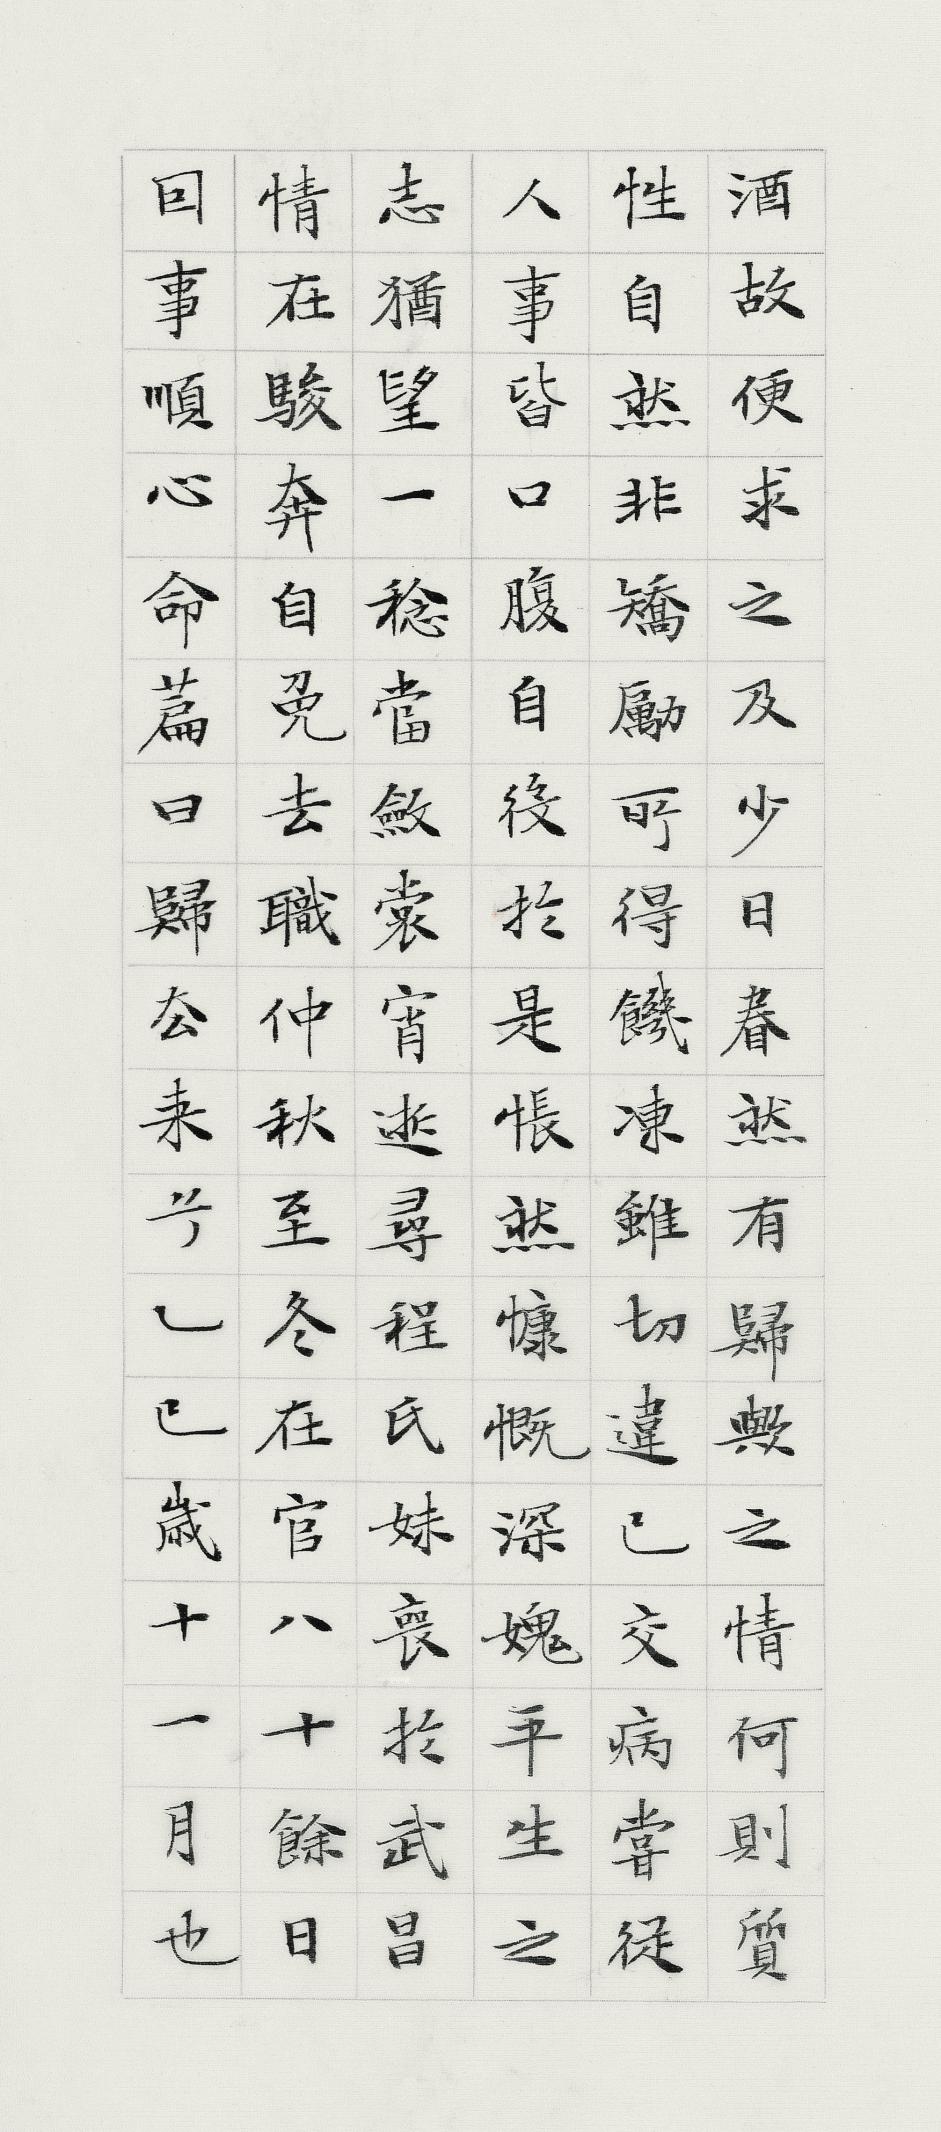 酒故便求之及少日眷然有歸歟之情何則質
性自然非矯勵所得饑凍雖切違己交病嘗從
人事皆口腹自役於是悵然慷慨深媿平生之
志猶望一稔當斂裳宵逝尋程氏妹喪於武昌
情在駿奔自免去職仲秋至冬在官八十餘日
回事順心命篇曰歸去来兮乙巳歲十一月也